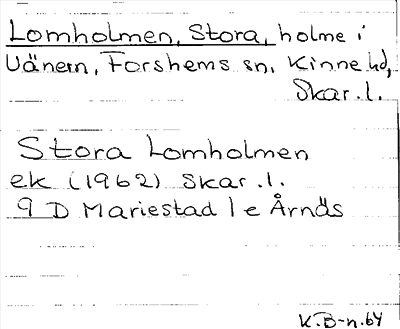 Lomholmen, Stora, holme i
Vänern, Forshems sn, Kinne hd,
Skar. l.
Stora Lomholmen
ek (1962) Skar. l.
9 D Mariestad 1 e Årnäs
K. B-n. 64